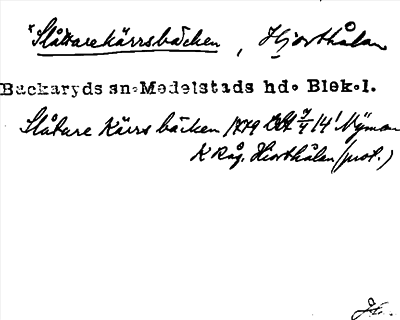 *Slåttarekärrsbäcken, Hjorthålan
Backaryds sn. Medelstads hd. Blek.l.
Slåtare Kärrs bäcken 1779 14' Nyman
K Råg. Hiorthålan (prot.)